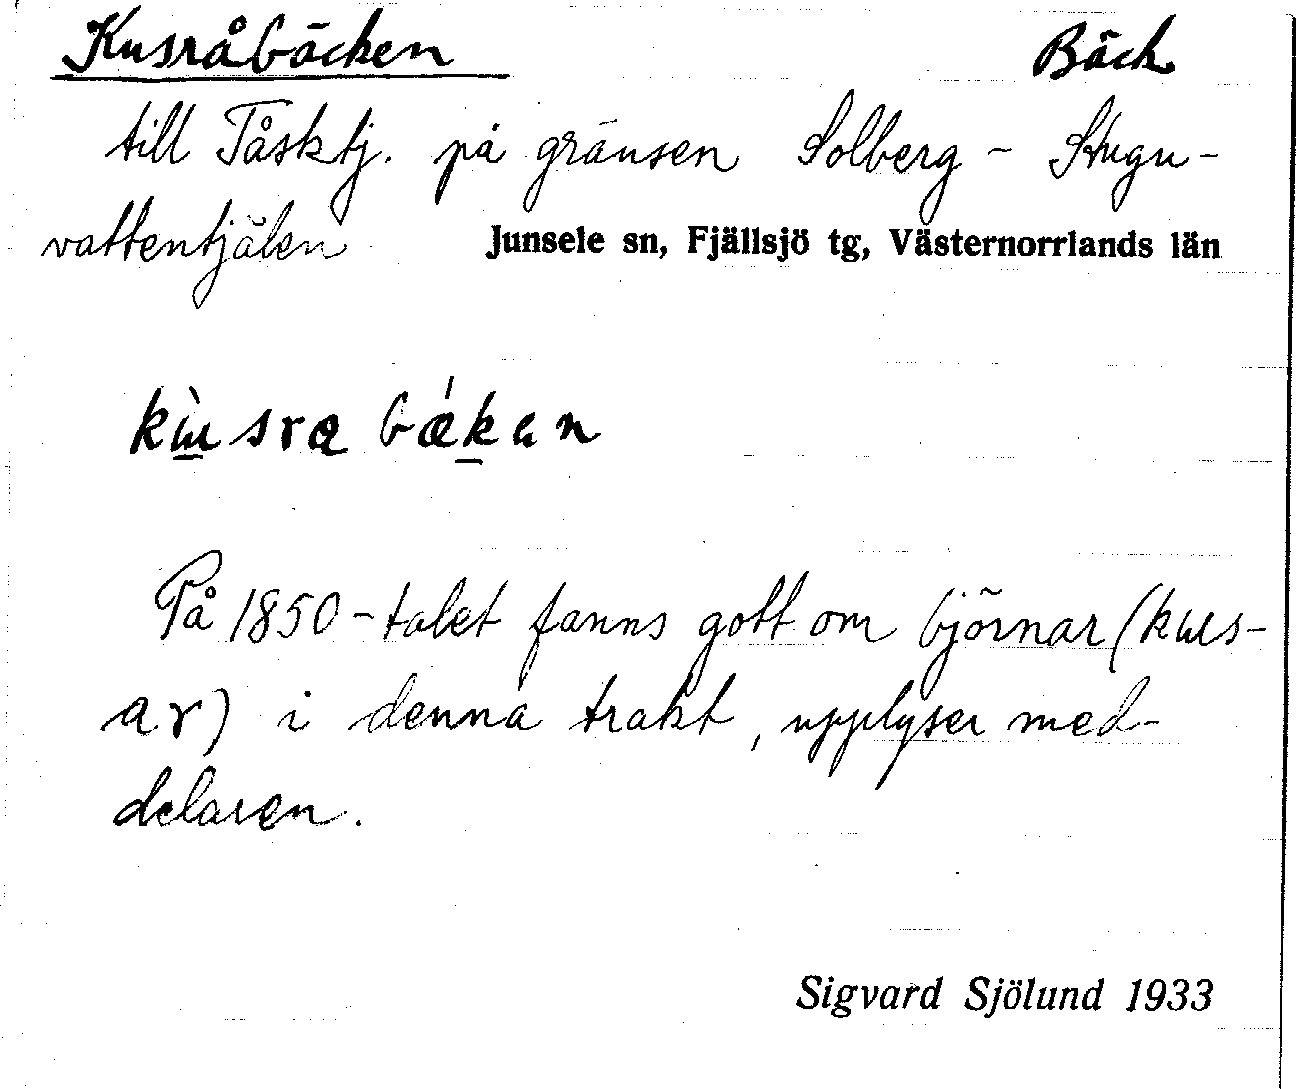 Kusråbäcken Bäck
till Tåsktj. på gränsen Solberg - Stugu-
vattentjälen Junsele sn, Fjällsjö tg, Västernorrlands län
kùsra bǽkan
På 1850-talet fanns gott om björnar (kus-
ar) i denna trakt, upplyser med-
delaren.
Sigvard Sjölund 1933